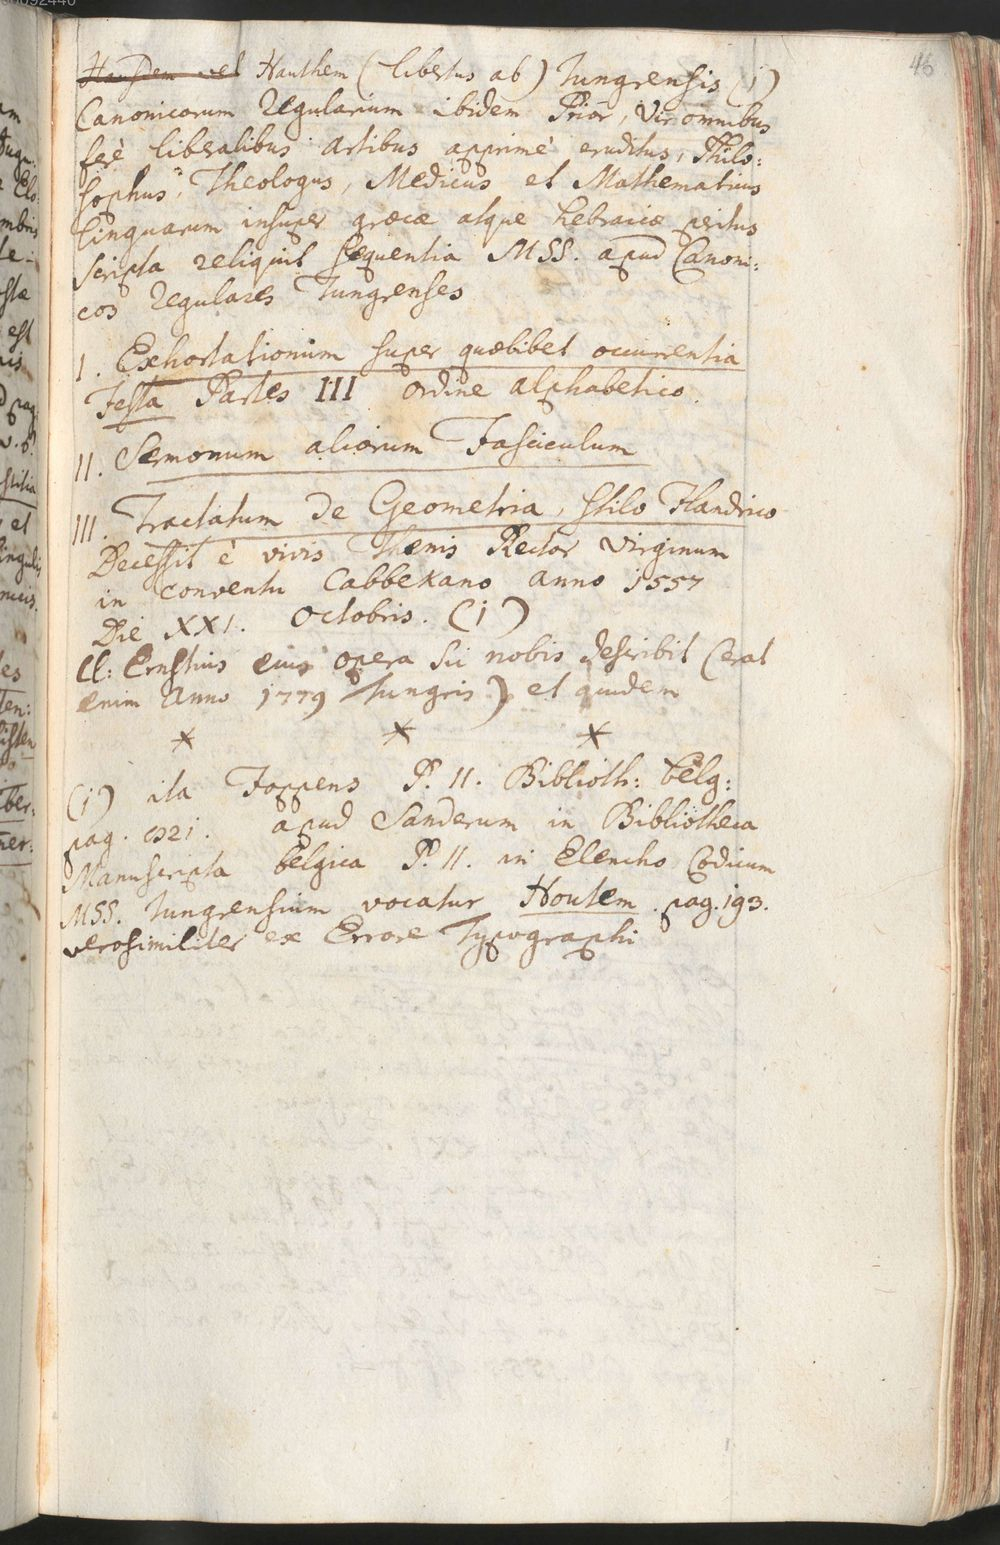 46
Hausdem vel Hauthem (libertus ab) Tungrensis (i)
Canonicorum Regularium ibidem Prior, Vir omnibus
ferè liberalibus artibus apprimè eruditus, Philo:
sophus, Theologus, Medicus et Mathematicus
linguarum insuper græcæ atque hebraicæ peritus
scripta reliquit sequentia MSS. apud Canoni:
cos Regulares Tungrenses
I. Exhortationum super quælibet occurrentia
Festa Partes III ordine alphabetico.
II. Sermonum aliorum Fasciculum
III. Tractatum de Geometria, stilo Flandrico
Decessit è vivis Thenis Rector Virginum
in conventu Cabbekano anno 1557
Die XXI. Octobris. (i)
Cl: Ernstius eius opera sic nobis describit (erat
enim anno 1779 Tungris) et quidem
* * *
(i) ita Foppens P. II. Biblioth: belg:
pag. 821. apud Sanderum in Bibliotheca
Manuscripta belgica P. II. in Elencho Codicum
MSS. Tungrensium vocatur Houtem. pag. 193.
verosimiliter ex Errore Typographi